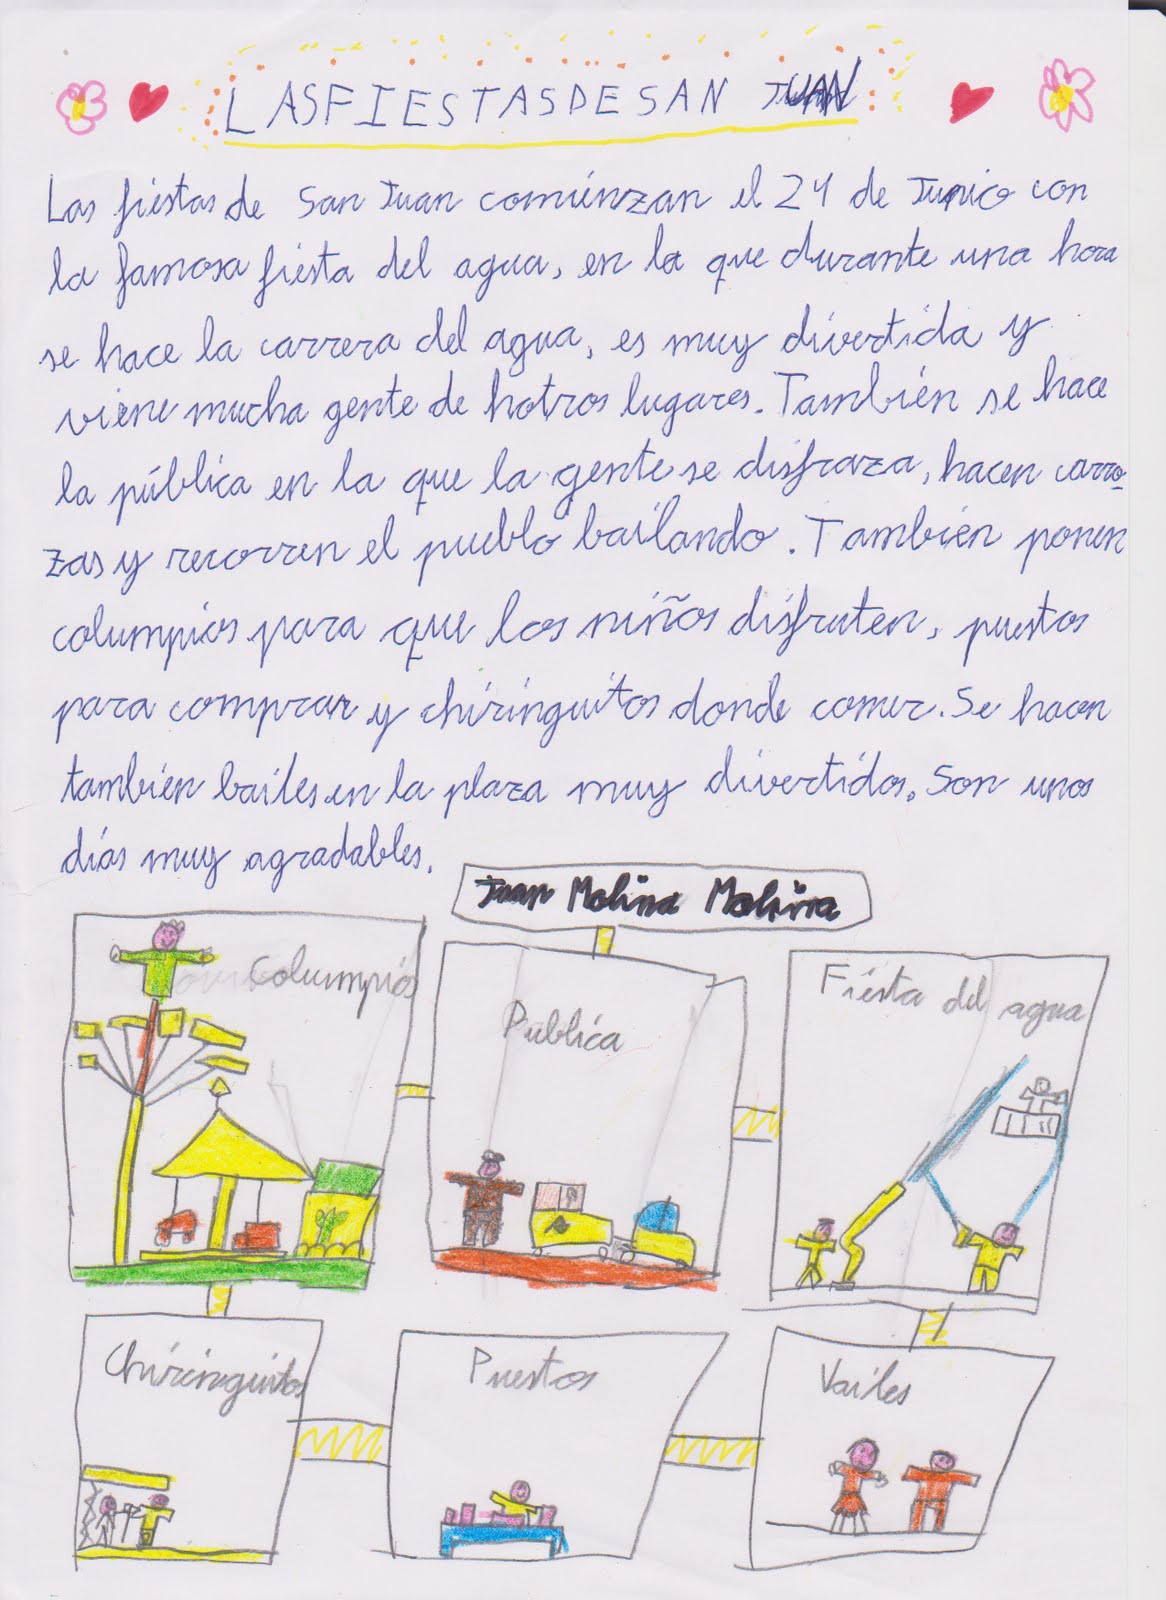 LAS FIESTAS DE SAN JUAN
Las fiestas de San Juan comienzan el 24 de Junio con
la famosa fiesta del agua, en la que durante una hora
se hace la carrera del agua, es muy divertida y
viene mucha gente de hotros lugares. También se hace
la pública en la que la gente se disfraza, hacen carro-
zas y recorren el pueblo bailando. También ponen
columpios para que los niños disfruten, puestos
para comprar y chiringuitos donde comer. Se hacen
también bailes en la plaza muy divertidos. Son unos
días muy agradables.
Juan Molina Molina
Columpios
Publica
Fiesta del agua
Chiringuitos
Puestos
Vailes